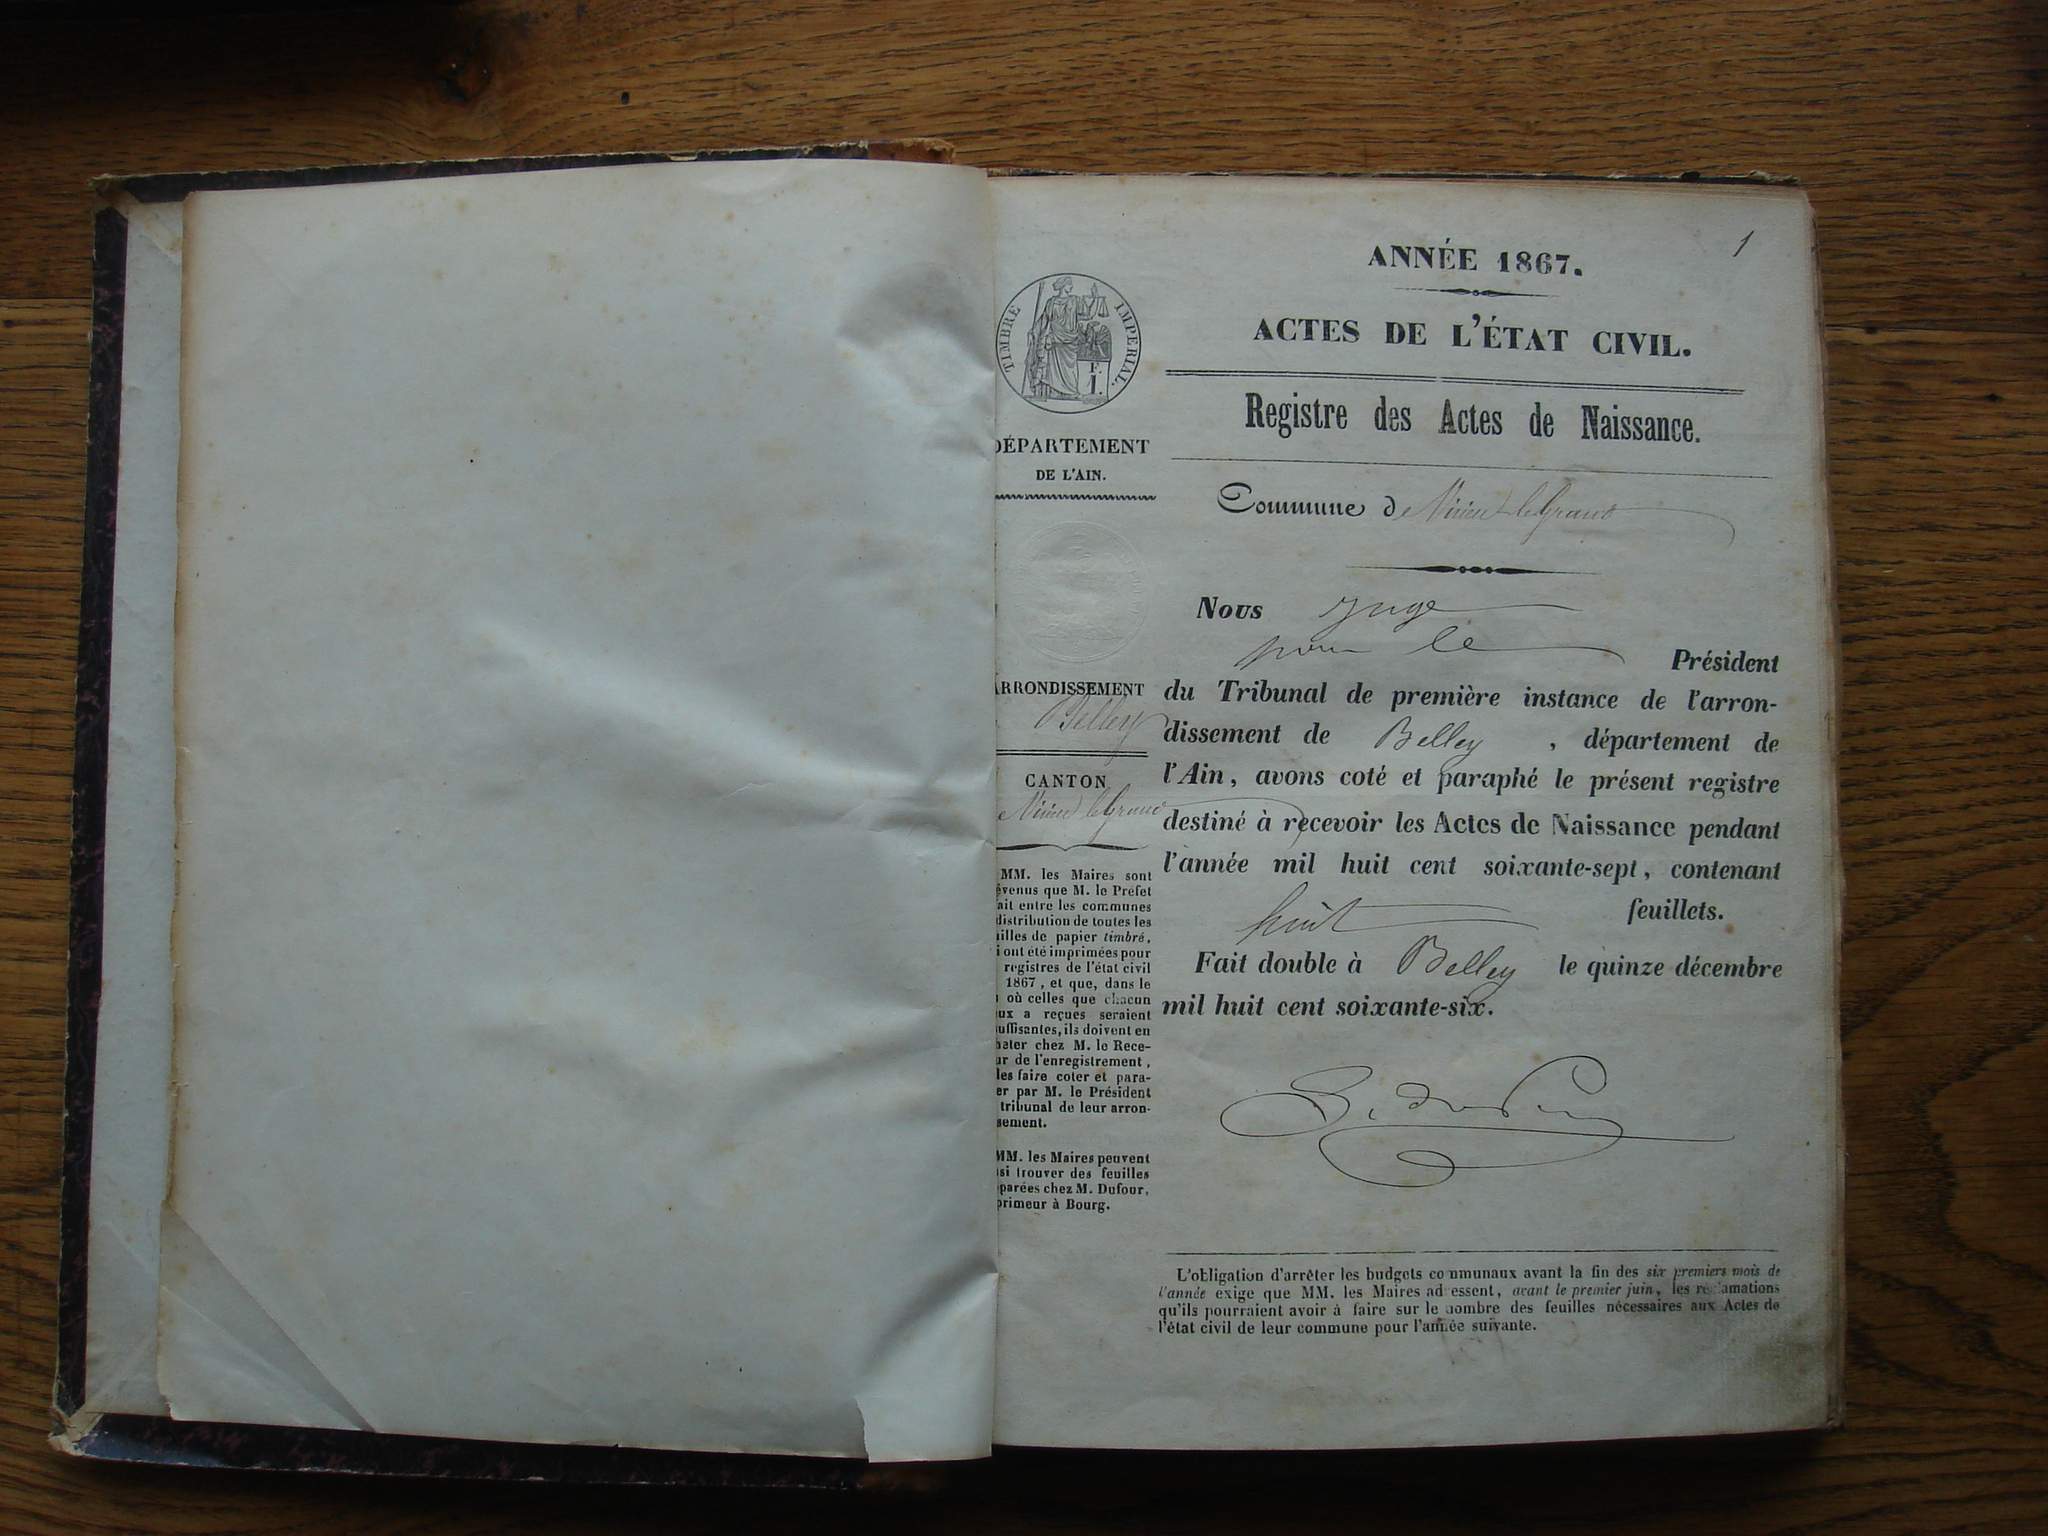 1
ANNÉE 1867.
ACTES DE L'ÉTAT CIVIL.
Registre des Actes de Naissance.
Commune de Virieu-le-Grand
Nous Juge
pour le Président
du Tribunal de première instance de l'arron-
dissement de Belley, département de
l'Ain, avons coté et paraphé le présent registre
destiné à recevoir les Actes de Naissance pendant
l'année mil huit cent soixante-sept, contenant
huit feuillets.
Fait double à Belley le quinze décembre
mil huit cent soixante-six.
L'obligation d'arrêter les budgets communaux avant la fin des six premiers mois de
l'année exige que MM. les Maires adressent, avant le premier juin, les réclamations
qu'ils pourraient avoir à faire sur le nombre des feuilles nécessaires aux Actes de
l'état civil de leur commune pour l'année suivante.
TIMBRE IMPERIAL.
F.
1.
DÉPARTEMENT
DE L'AIN.
ARRONDISSEMENT
Belley
CANTON
e Virieu le Grand
MM. les Maires sont
évenus que M. le Préfet
ait entre les communes
distribution de toutes les
illes de papier timbré,
i ont été imprimées pour
registres de l'état civil
1867, et que, dans le
où celles que chacun
ux a reçues seraient
uffisantes, ils doivent en
heter chez M. le Rece-
ur de l'enregistrement,
les faire coter et para-
er par M. le Président
tribunal de leur arron-
sement.
MM. les Maires peuvent
si trouver des feuilles
parées chez M. Dufour,
primeur à Bourg.